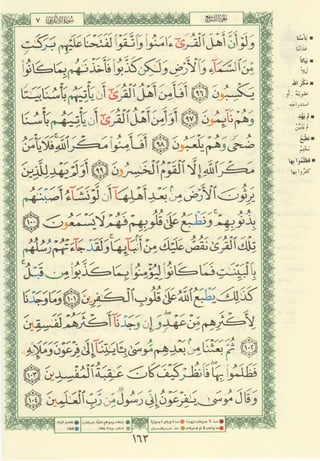 الجزء التاسع
سورة الأعراف ٧
وَلَوْ أَنَّ أَهْلَ الْقُرَىٰ ءَامَنُوا وَاتَّقَوْا لَفَتَحْنَا عَلَيْهِم بَرَكَٰتٍ
مِّنَ السَّمَآءِ وَالْأَرْضِ وَلَٰكِن كَذَّبُوا فَأَخَذْنَٰهُم بِمَا كَانُوا
يَكْسِبُونَ ٩٦ أَفَأَمِنَ أَهْلُ الْقُرَىٰٓ أَن يَأْتِيَهُم بَأْسُنَا بَيَٰتًا
وَهُمْ نَآئِمُونَ ٩٧ أَوَأَمِنَ أَهْلُ الْقُرَىٰٓ أَن يَأْتِيَهُم بَأْسُنَا
ضُحًى وَهُمْ يَلْعَبُونَ ٩٨ أَفَأَمِنُوا مَكْرَ اللَّهِ فَلَا يَأْمَنُ
مَكْرَ اللَّهِ إِلَّا الْقَوْمُ الْخَٰسِرُونَ ٩٩ أَوَلَمْ يَهْدِ لِلَّذِينَ
يَرِثُونَ الْأَرْضَ مِنۢ بَعْدِ أَهْلِهَآ أَن لَّوْ نَشَآءُ أَصَبْنَٰهُم
بِذُنُوبِهِمْ وَنَطْبَعُ عَلَىٰ قُلُوبِهِمْ فَهُمْ لَا يَسْمَعُونَ ١٠٠
تِلْكَ الْقُرَىٰ نَقُصُّ عَلَيْكَ مِنْ أَنۢبَآئِهَا وَلَقَدْ جَآءَتْهُمْ رُسُلُهُم
بِالْبَيِّنَٰتِ فَمَا كَانُوا لِيُؤْمِنُوا بِمَا كَذَّبُوا مِن قَبْلُ
كَذَٰلِكَ يَطْبَعُ اللَّهُ عَلَىٰ قُلُوبِ الْكَٰفِرِينَ ١٠١ وَمَا وَجَدْنَا
لِأَكْثَرِهِم مِّنْ عَهْدٍ وَإِن وَجَدْنَآ أَكْثَرَهُمْ لَفَٰسِقِينَ
١٠٢ ثُمَّ بَعَثْنَا مِنۢ بَعْدِهِم مُّوسَىٰ بِـَٔايَٰتِنَآ إِلَىٰ فِرْعَوْنَ وَمَلَإِيْهِ
فَظَلَمُوا بِهَا فَانظُرْ كَيْفَ كَانَ عَٰقِبَةُ الْمُفْسِدِينَ ١٠٣
وَقَالَ مُوسَىٰ يَٰفِرْعَوْنُ إِنِّي رَسُولٌ مِّن رَّبِّ الْعَٰلَمِينَ ١٠٤
١٦٣
بأسنا
عذابنا
بياتا
مكر الله
عقوبته
فظلموا بها
كفروا بها